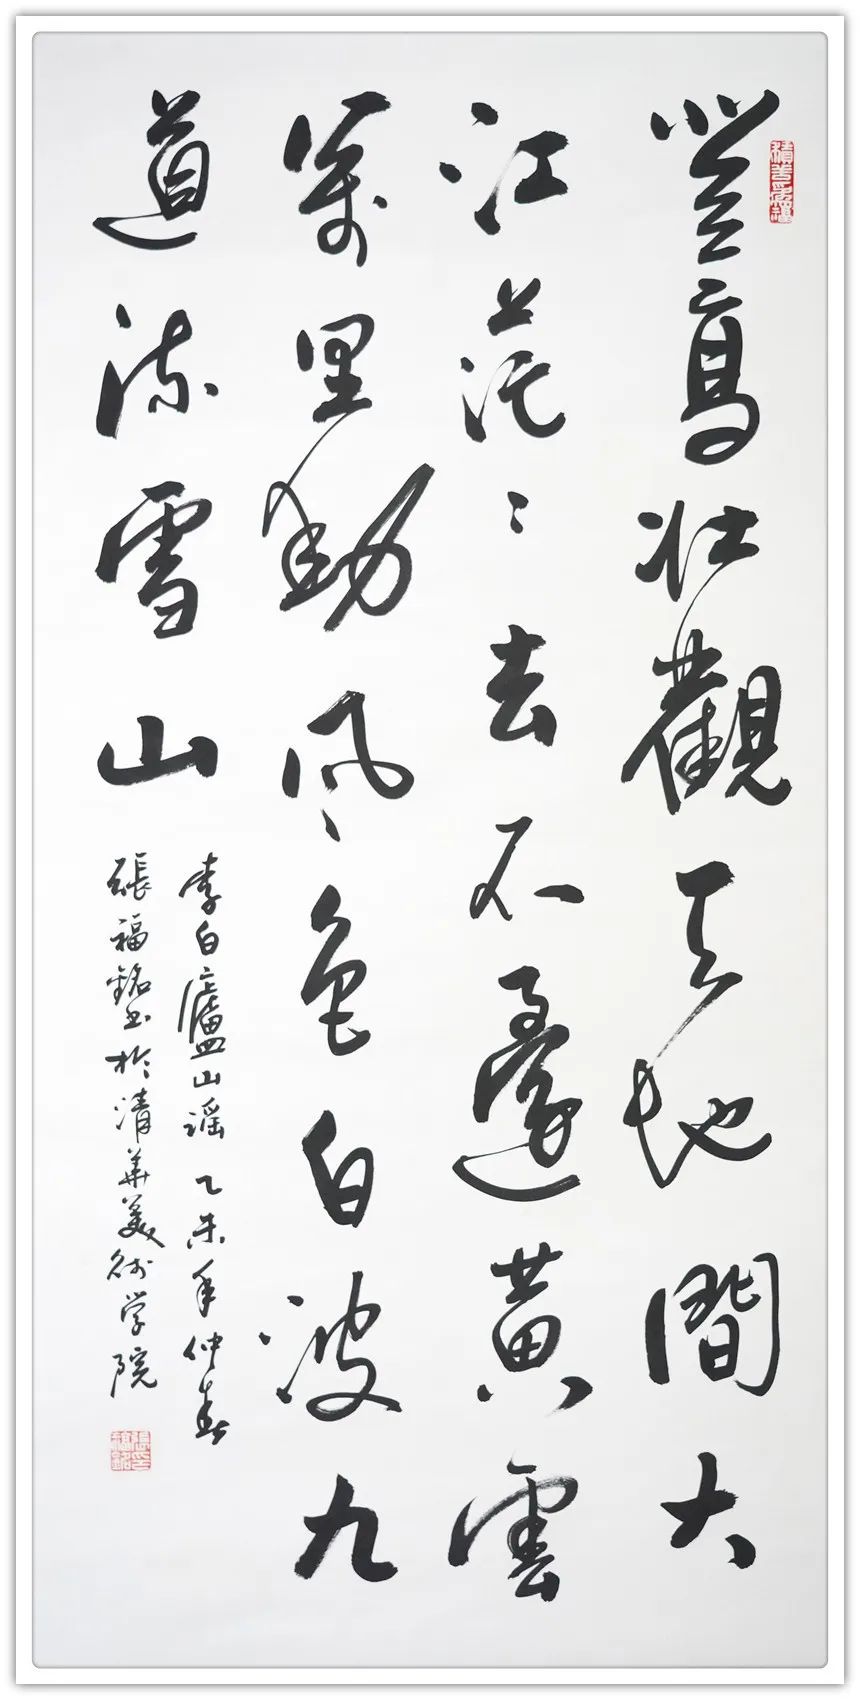 登高壯觀天地間大
江茫〻去不還黃雲
萬里動風色白波九
道流雪山
李白廬山謡乙未年仲春
張福銘书於清華美術学院
張福銘印